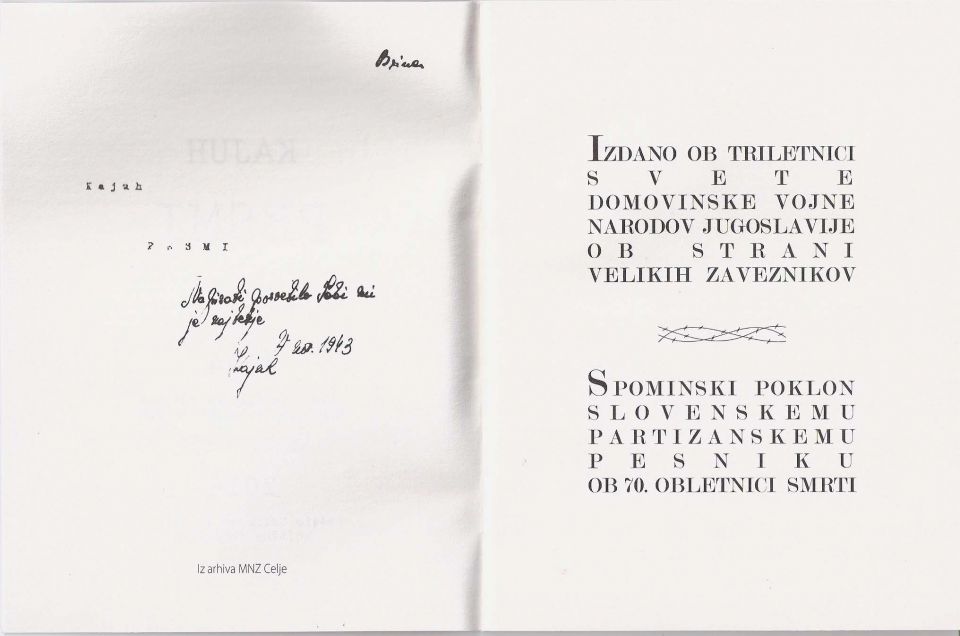 Kajuh
PESMI
je
nov. 1943
Iz arhiva MNZ Celje
IZDANO OB TRILETNICI
SVETE
DOMOVINSKE VOJNE
NARODOV JUGOSLAVIJE
OB STRANI
VELIKIH ZAVEZNIKOV
SPOMINSKI POKLON
SLOVENSKEMU
PARTIZANSKEMU
PESNIKU
OB 70. OBLETNICI SMRTI